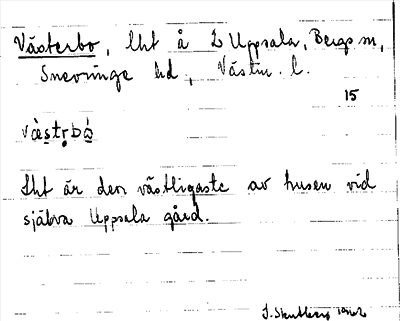 Västerbo, lht å L Uppsala, Bergs sn,
Snevringe hd, Västm. l.
15
væ̀str̥bò
Lht är den västligaste av husen vid
själva Uppsala gård.